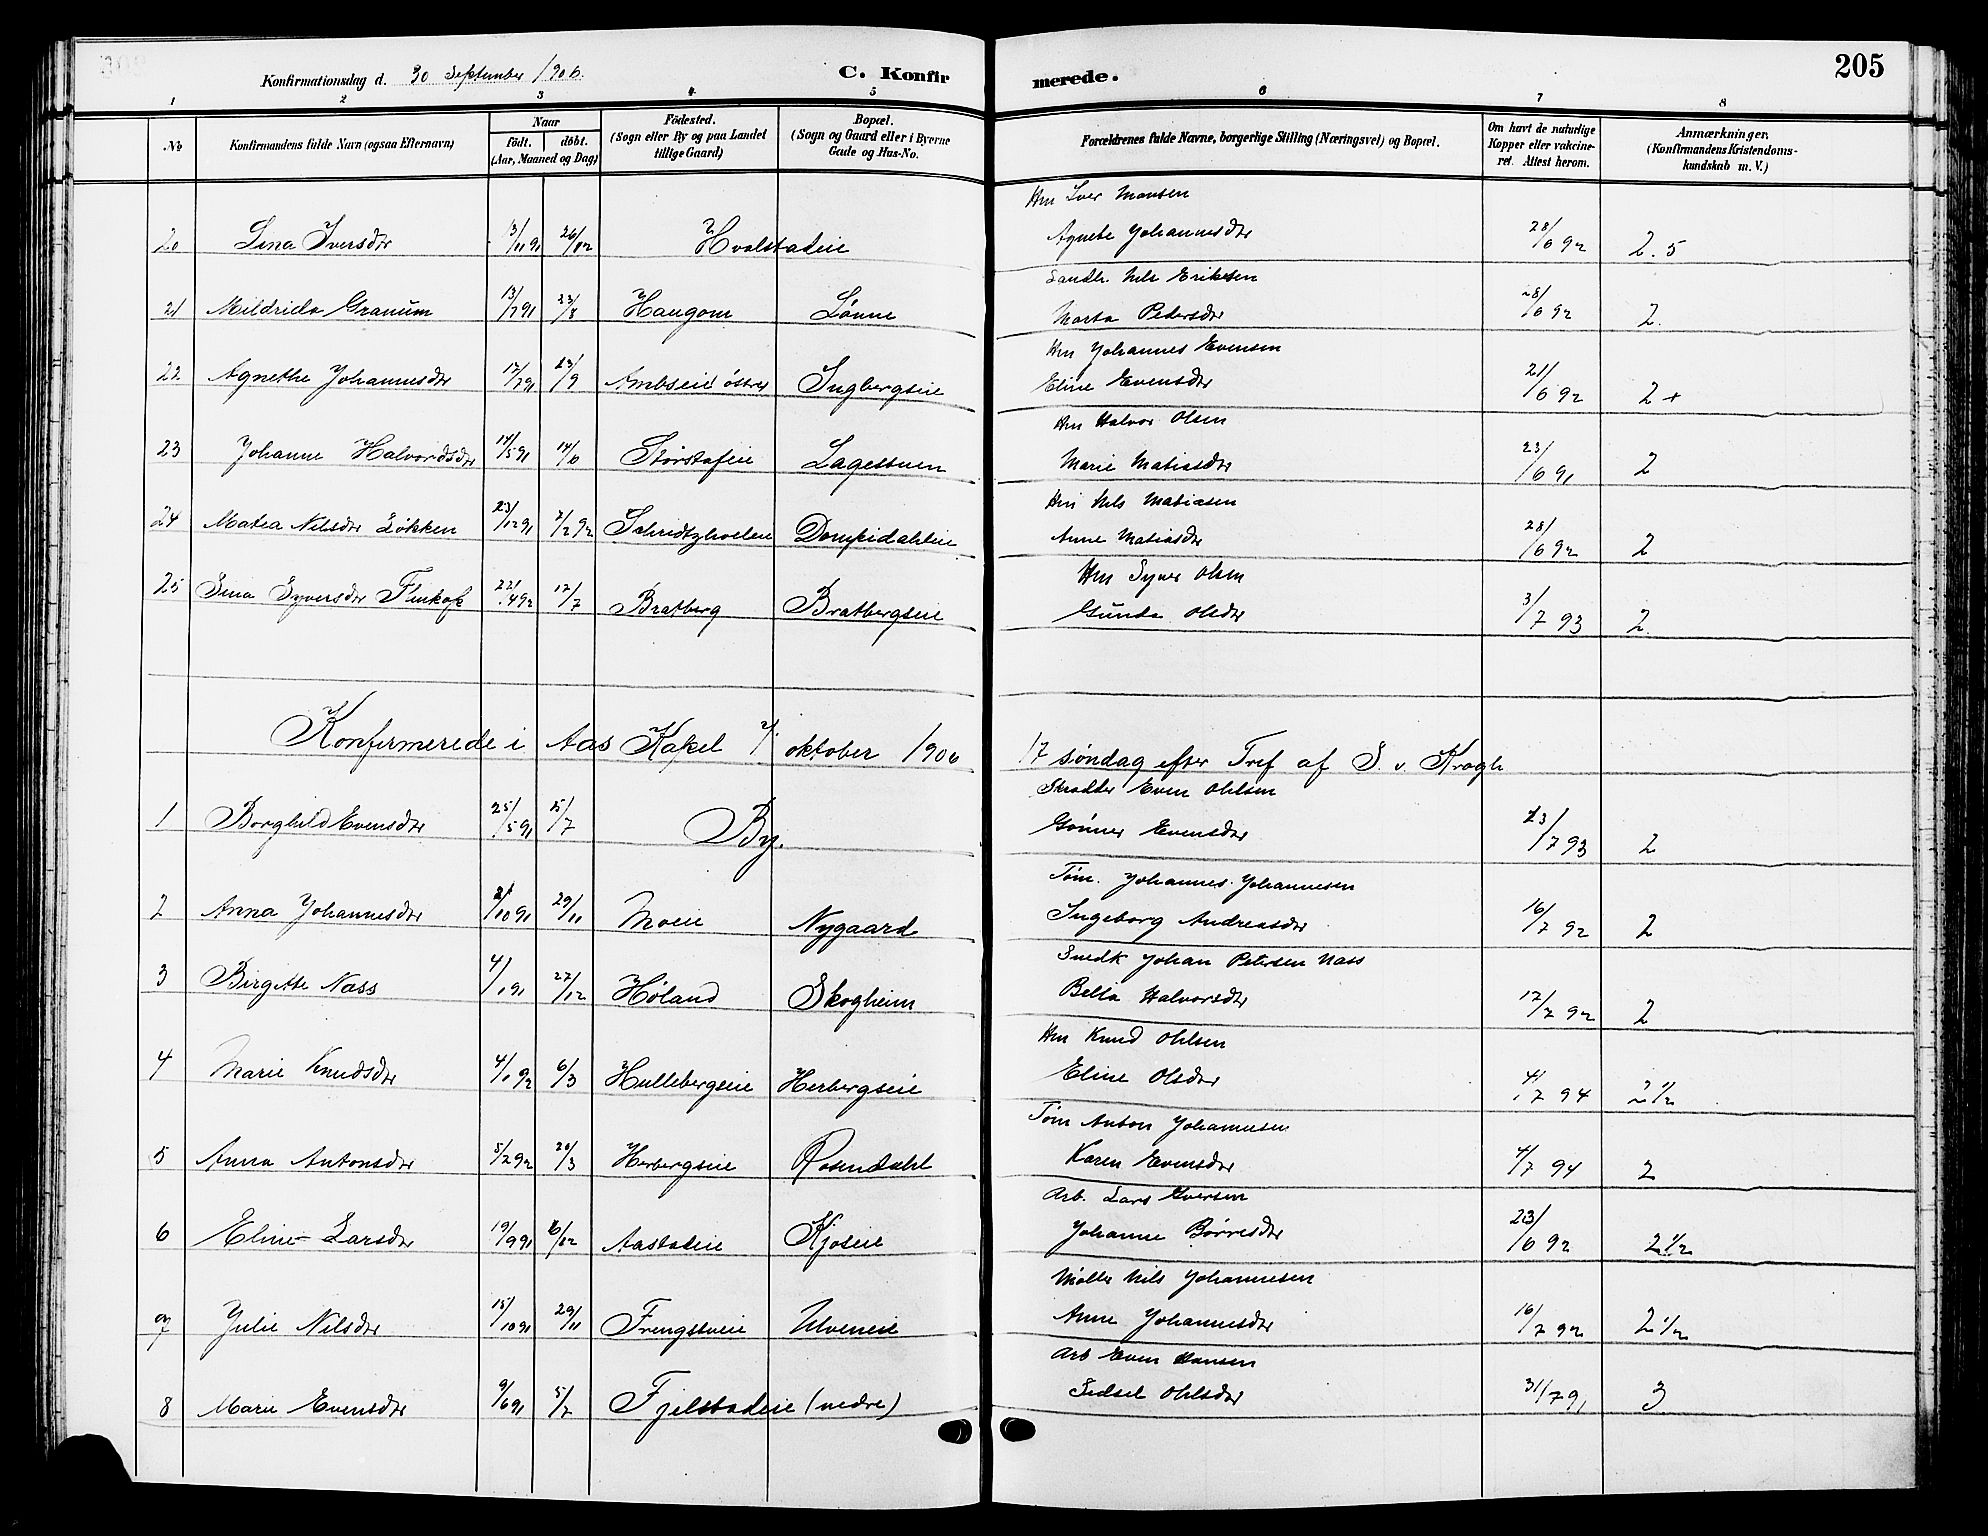 205
Konfirmationsdag d. 30 September 1906. C. Konfirmerede.
1 2 3 4 5 6 7 8
No Konfirmandens fulde Navn (ogsaa Efternavn) Naar födt. döbt. (Aar, Maaned og Dag) Födested. (Sogn eller By og paa Landet tillige Gaard) Bopæl. (Sogn og Gaard eller i Byerne Gade og Hus-No. Forældrenes fulde Navne, borgerlige Stilling (Næringsvei) og Bopæl. Om havt de naturlige Kopper eller vakcineret. Attest herom. Anmærkninger, (Konfirmandens Kristendomskundskab m. V.)
Hm Iver Hansen
20 Lina Iversdtr 13/11 91 26/12 Hvalstadeie Agnete Johannesdtr 28/6 92 2.5
Sandh. Nils Eriksen
21 Mildrida Granum 13/7 91 23/8 Haugom Lønne Marta Pedersdtr 28/6 92 2.
Hm Johannes Evensen
22 Agnethe Johannesdtr 17/7 91 13/9 Ambseie østre Ingbergseie Eline Evensdtr 21/6 92 2+
Hm Halvor Olsen
23 Johanne Halvordsdtr 14/5 91 14/6 Størstafeie Lagesttuen Marie Matiasdtr 23/6 91 2
Hm Nils Matiasen
24 Matea Nilsdtr Løkken 23/12 91 7/2 92 Schredtzhvelen Dompidahleie Anne Matiasdtr 28/6 92 2
Hm Syver Olsen
25 Lina Syversdtr Finkop 22/4 92 17/7 Bratberg Bratbergseie Gunda Olsdtr 3/7 93 2.
Konfirmerede i Aas Kapel 7/ oktober 1906 17 søndag efter Tref af S. v. Krogh
Skrædder Even Ohlsen
1 Borghild Evensdtr 25/5 91 5/7 By. Gonner Evensdtr 13/7 93 2
Tøm. Johannes Johannesen
2 Anna Johannesdtr 21/10 91 29/11 Moeie Nygaard Ingeborg Andreasdtr 16/7 92 2
Snedk Johan Petersen Næss
3 Birgitte Næss 4/1 91 27/12 Høland Skogheim Bella Halvorsdtr 17/7 92 2
Hm Knud Ohlsen
4 Marie Knudsdtr 4/1 92 6/3 Hullebergseie Herbergseie Eline Olsdtr 4/7 94 2 1/2
Tøm Anton Johannesen
5 Anna Antonsdtr 5/2 92 20/3 Herbergseie Rosendahl Karen Evensdtr 4/7 94 2
Arb. Lars Iversen
6 Eline Larsdtr 19/9 91 6/12 Aastadeie Kjoseie Johanne Børresdtr 23/6 92 2 1/2
Møller Nils Johannesen
7 Julie Nilsdtr 15/10 91 29/11 Frengstveie Ulveneie Anne Johannesdtr 16/7 92 2 1/2
Arb Even Hansen
8 Marie Evensdtr 9/6 91 5/7 Fjelstadeie (nedre) Sidsel Ohlsdtr 31/7 91 3